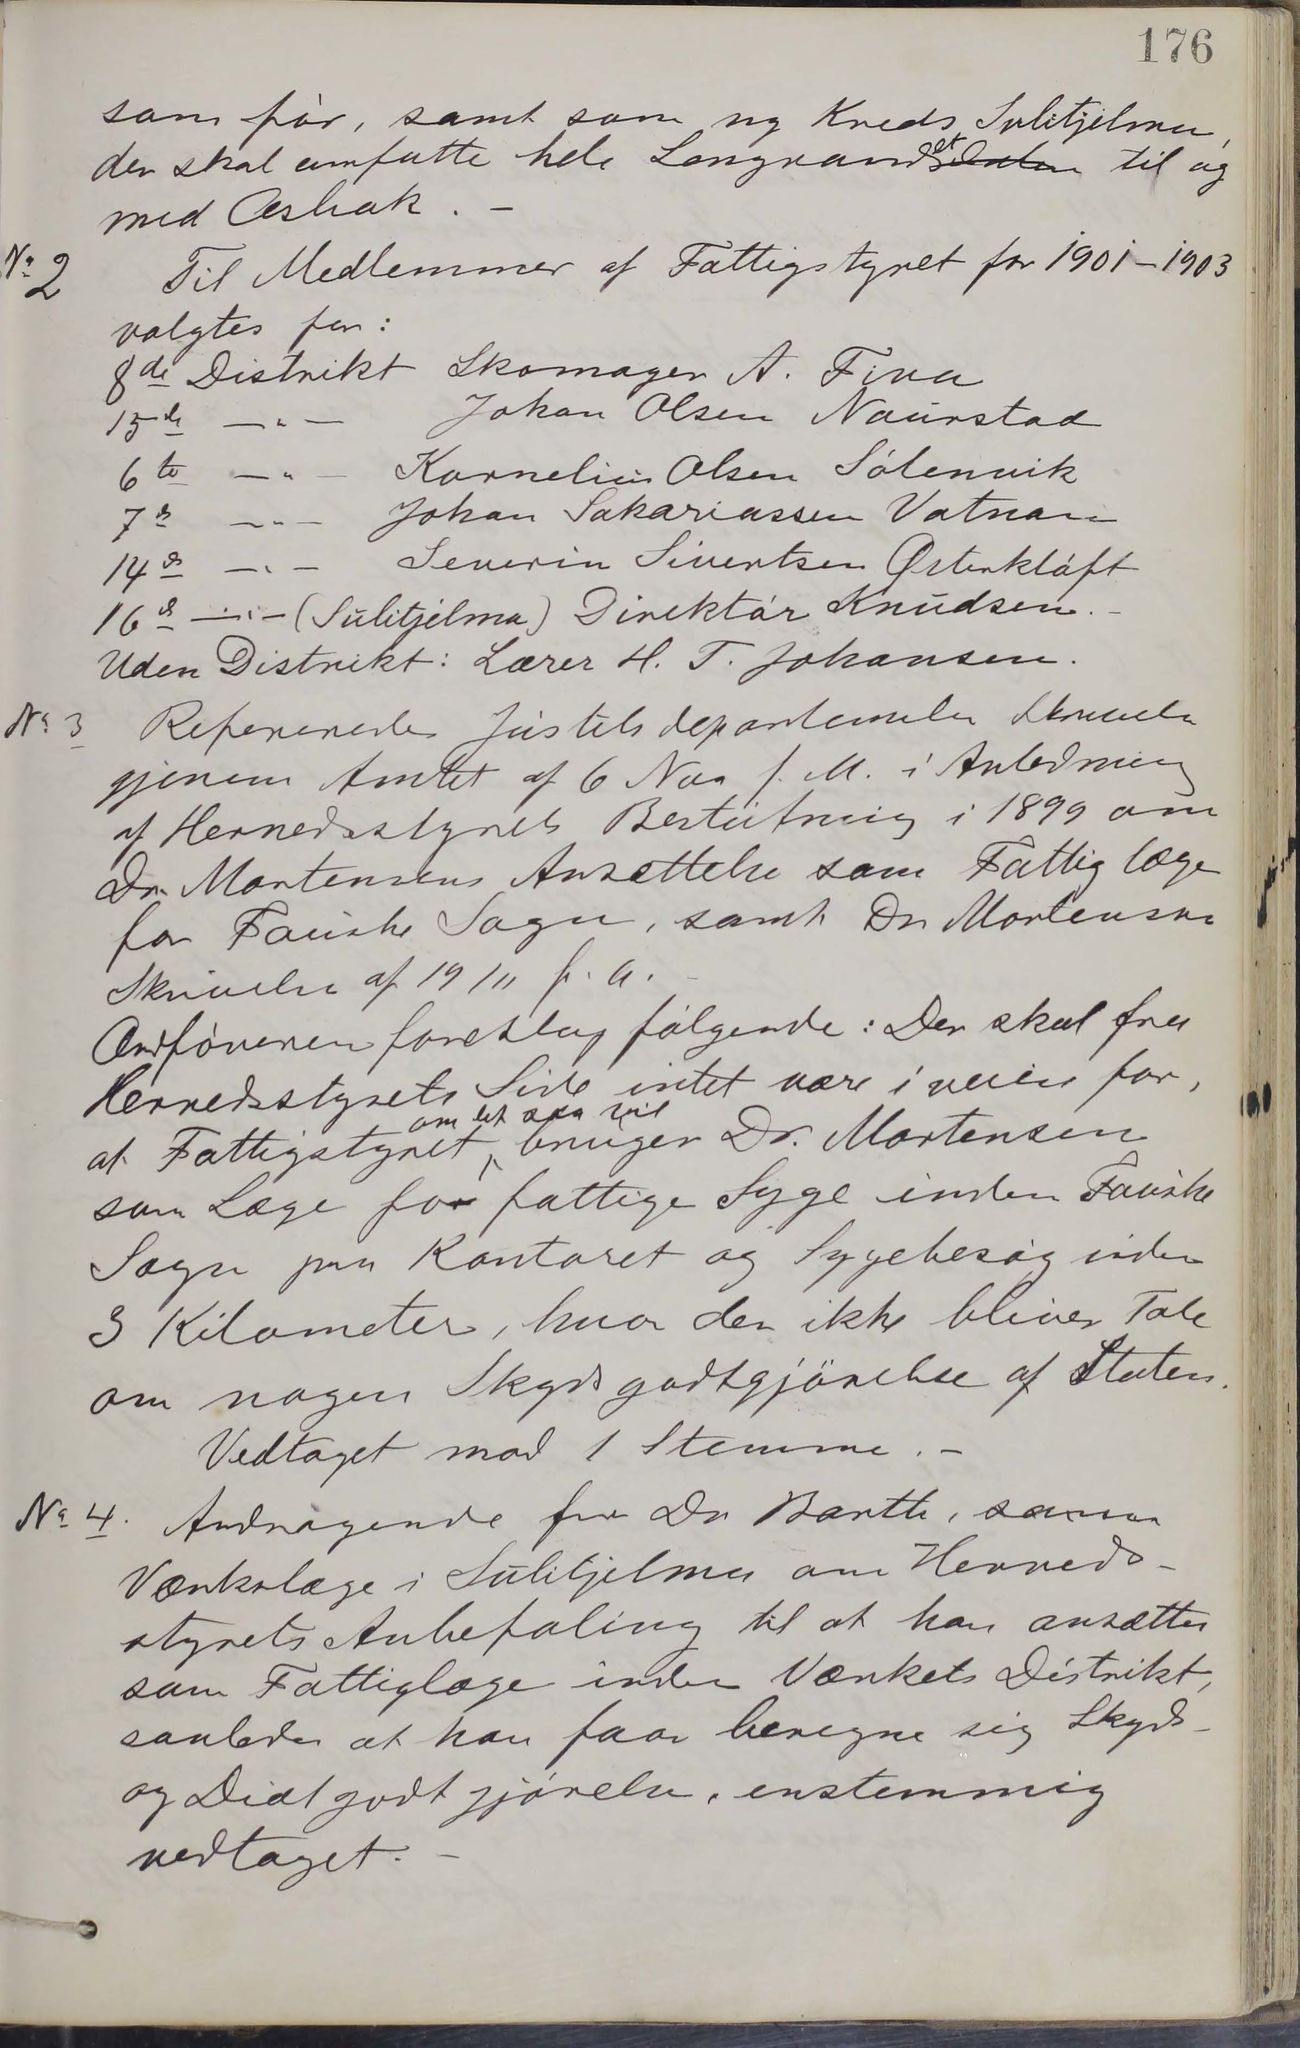 176
som før, samt som ny Kreds Sulitjelma,
der skal omfatte hele Langvandet til og
med Øshak. -
No 2 Til Medlemmer af Fattigstyret for 1901-1903
valgtes for:
8de Distrikt Skomager A. Five
15de —"— Johan Olsen Naurstad
6te —"— Kornelius Olsen Sølenvik
7d —"— Johan Sakariassen Vatnan
14d —"— Severin Sivertsen Østerkløft
16d —"— (Sulitjelma) Direktør Knudsen. -
Uden Distrikt: Lærer H. T. Johansen.
No 3 Refereredes Justitsdepartementets Skrivelse
gjenem Amtet af 6 Nov f. M. i Anledning
af Herredsstyrets Beslutning i 1899 om
Dr. Mortensens Ansættelse som Fattiglæge
for Fauske Sogn, samt Dr Mortensens
Skrivelse af 19/11 f. A. -
Ordføreren foreslog følgende: Der skal fra
Herredsstyrets Side intet være i veien for,
at Fattigstyret, om det saa vil bruger Dr. Mortensen
som Læge for fattige Syge inden Fauske
Sogn paa Kontoret og Sygebesøg inden
3 Kilometer, hvor der ikke bliver Tale
om nogen Skydsgodtgjørelse af Staten.
Vedtaget mod 1 Stemme. -
No 4. Andragende fra Dr Barth, som
Værkslæge i Sulitjelma om Herreds-
styrets Anbefaling til at han ansættes
som Fattiglæge inden Værkets Distrikt,
saaledes at han faar beregne sig Skyds-
og Diætgodtgjørelse, enstemmig
vedtaget. -